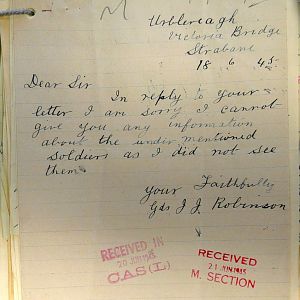 Urblereagh
Victoria Bridge
Strabane
18 6 45
Dear Sir
In reply to your
letter I am sorry I cannot
give you any information
about the under mentioned
Soldiers as I did not see
them
your Faithfully
Gds J J Robinson
RECEIVED IN
20 JUN 1945
CAS(L)
RECEIVED
21 JUN 1945
M. SECTION